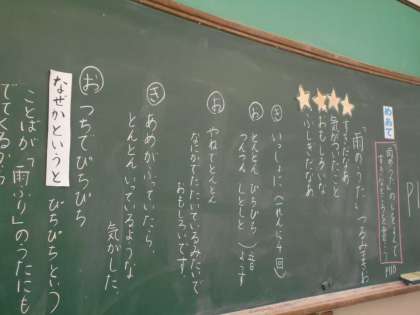 P11
めあて
「雨のうた」
「雨のうた」つるみまさお
すきだなあ
気がついたこと
おもしろいな
ふしぎだなあ
き いっしょに(一れんに4回)
お とんとん ぴちぴち
つんつん しとしと
音
ようす
お やねでとんとん
なにかたたいているみたいで
おもしろいです。
き あめがふっていたら、
とんとんいっているような
気がした。
お つちでぴちぴち
なぜかというと
ぴちぴちという
ことばが「雨ふり」のうたにも
でてくるから